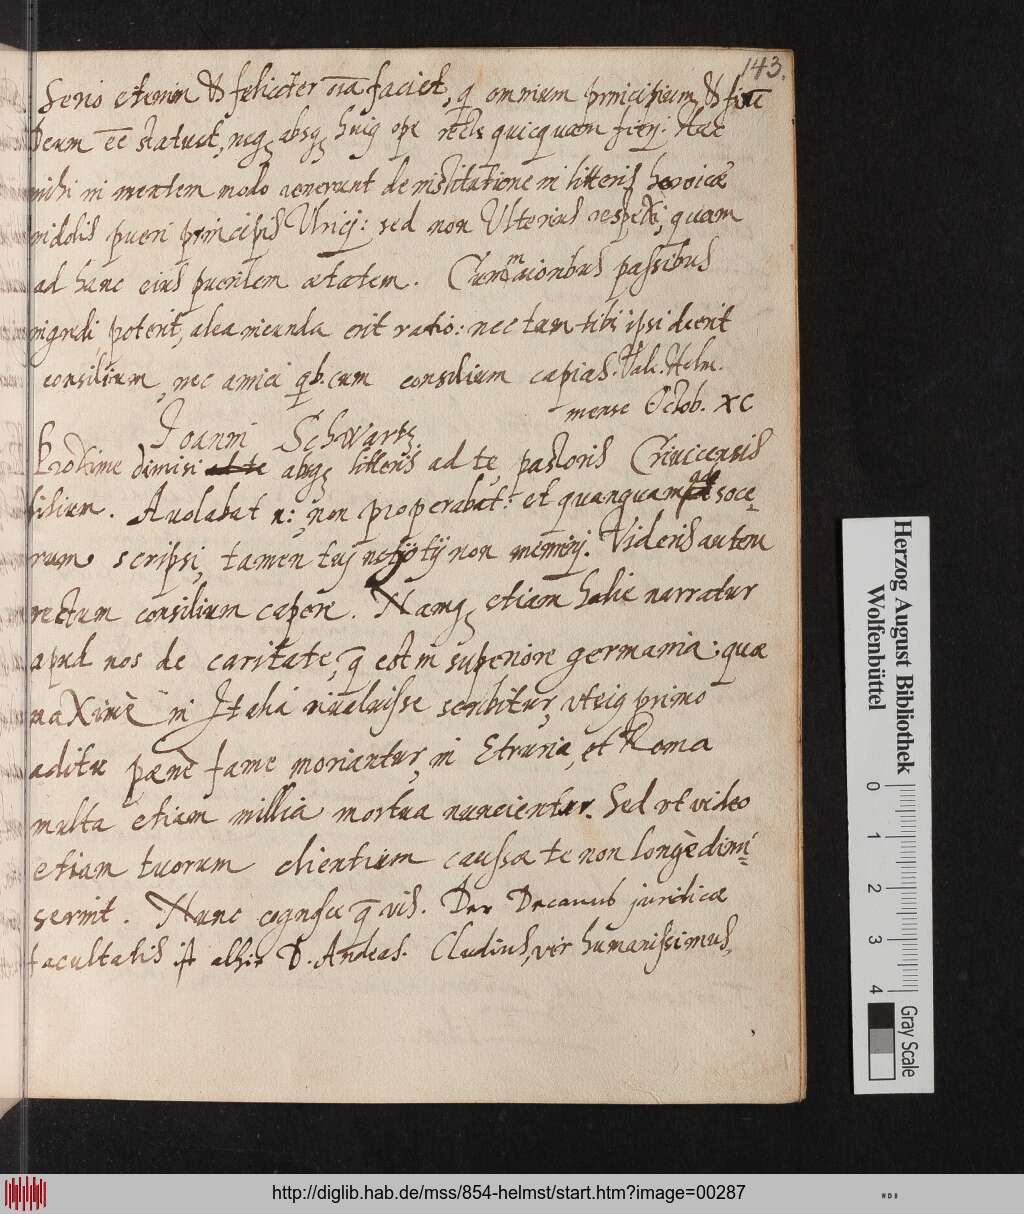 143.
Serio etenim & feliciter oīa faciet, q̄ omnium principium & finē
Deum eē statuet, neq; absq; huiq ope rectè quicquam fieri: Hæc
mihi in mentem modo venerunt de institutione in litteris heroicæ
indolis pueri principis Ulrici: sed non Ulterius respexi, quam
ad hanc eius puerilem ætatem. Cum maioribus passibus
ingredi poterit, alea ineunda erit ratio: nec tum tibi ipsi deerit
consilium, nec amici qb. cum consilium capias. Val. Helm.
mense Octob. XC
Joanni Schwartz
Proxime dimisi absq; litteris ad te, pastoris
filium. Auolabat n: non properabat: et quanquam soce
rum scripsi, tamen tui non memini. Videris autem
rectum consilium capere. Namq; etiam hodie narratur
apud nos de caritate, q̄ est in superiore germania: quæ
maximè in Italia inualuisse scribitur, vt eiq primo
aditu pæne fame moriantur, in Etruria, et Roma
multa etiam millia mortua nuncientur. Sed vt video
etiam tuorum clientium caussæ te non longè dimi=
serint. Nunc cognosce q̄ vis. Der Decanus juridicæ
facultatis ist alhie D. Andreas. Cludius, vir humanissimus,
Herzog August Bibliothek
Wolfenbüttel
0 1 2 3 4
Gray Scale
http://diglib.hab.de/mss/854-helmst/start.htm?image=00287